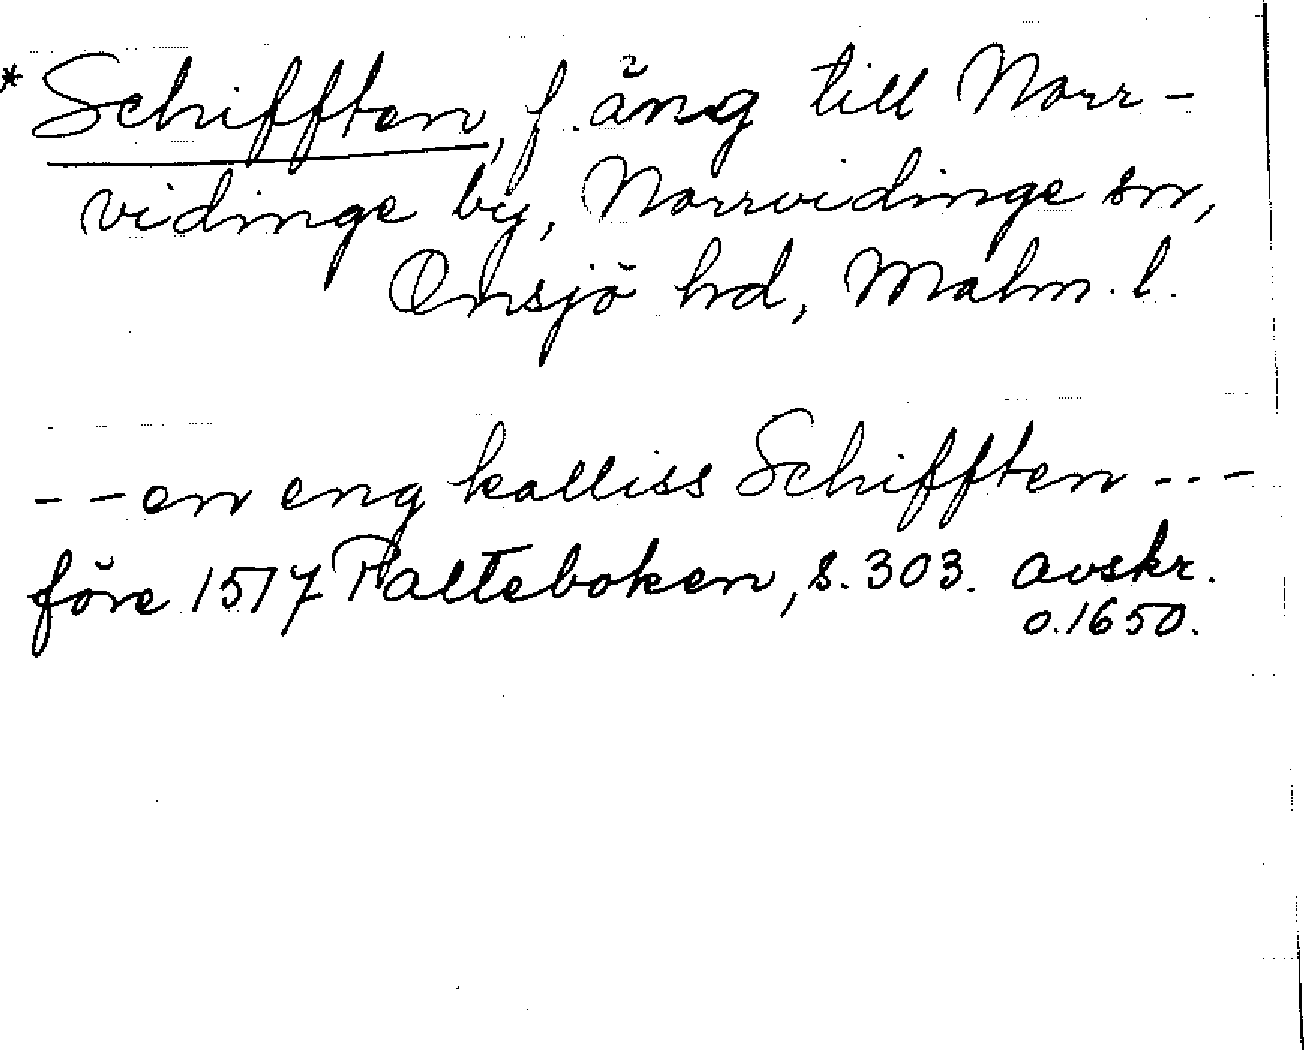 * Schifften, f. äng till Norr-
vidinge by, Norrvidinge sn,
Onsjö hd, Malm. l.
- - en eng kalliss Schifften - - -
före 1517 Palteboken, s. 303. avskr.
o. 1650.